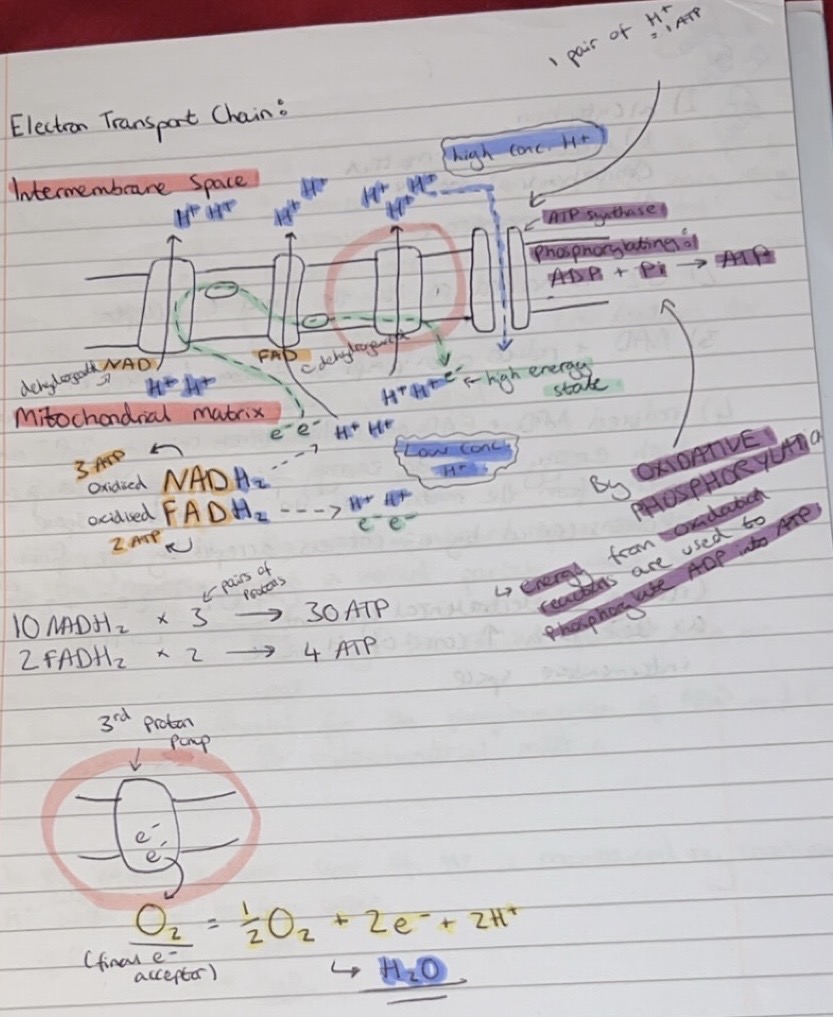 1 pair of H+
= 1 ATP
Electron Transport Chain:
high conc. H+
Intermembrane Space
H+ H+
H+ H+
H+ H+ H+
ATP synthase
phosphorylating:
ADP + Pi → ATP
dehydrogenate NAD
FAD
dehydrogenate
H+ H+
H+ H+ e- ← high energy
state
Mitochondrial matrix
e- e-
H+ H+
Low conc.
H+
3 ATP
oxidised NADH2
oxidised FADH2 ---> H+ H+
e- e-
2 ATP
By OXIDATIVE
PHOSPHORYLATIO
↳ energy from oxidation
reactions are used to
phosphorylate ADP into ATP
pairs of
protons
10 NADH2 × 3 → 30 ATP
2 FADH2 × 2 → 4 ATP
3rd Proton
Pump
e-
e-
O2 = ½O2 + 2e- + 2H+
(final e-
acceptor)
↳ H2O